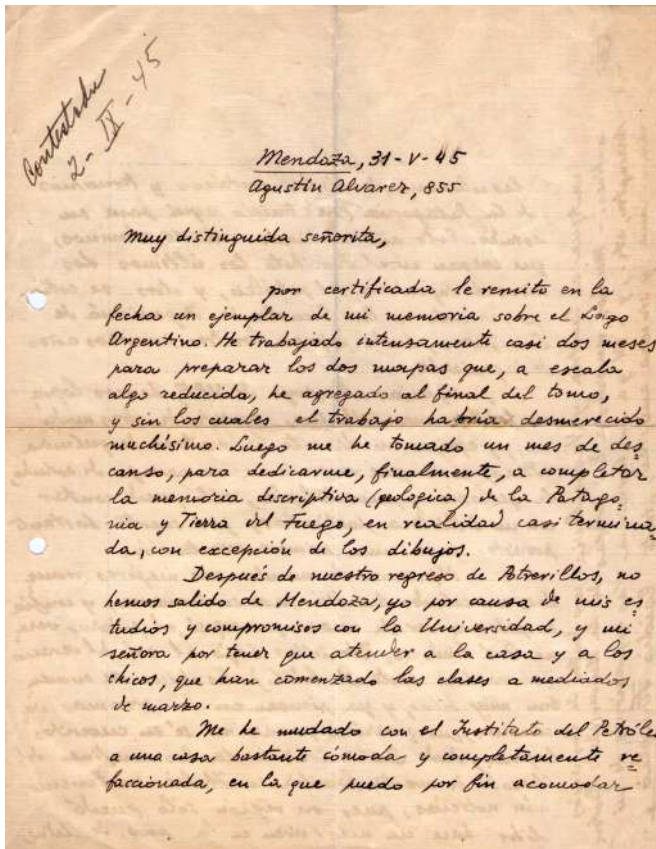 Contestada
2-IX-45
Mendoza, 31-V-45
Agustín Alvarez, 855
Muy distinguida señorita,
por certificada le remito en la
fecha un ejemplar de mi memoria sobre el Lago
Argentino. He trabajado intensamente casi dos meses
para preparar los dos mapas que, a escala
algo reducida, he agregado al final del tomo,
y sin los cuales el trabajo habría desmerecido
muchísimo. Luego me he tomado un mes de des=
canso, para dedicarme, finalmente, a completar
la memoria descriptiva (geológica) de la Patago=
nia y Tierra del Fuego, en realidad casi termina=
da, con excepción de los dibujos.
Después de nuestro regreso de Potrerillos, no
hemos salido de Mendoza, yo por causa de mis es=
tudios y compromisos con la Universidad, y mi
señora por tener que atender a la casa y a los
chicos, que han comenzado las clases a mediados
de marzo.
Me he mudado con el Instituto del Petróleo
a una casa bastante cómoda y completamente re=
faccionada, en la que puedo por fin acomodar